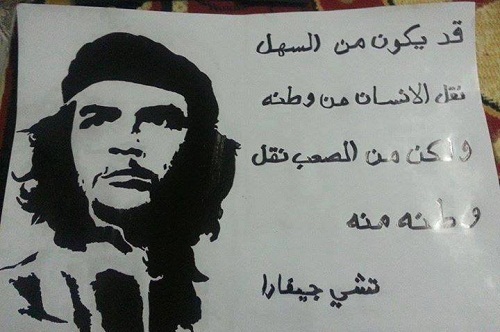 قد يكون من السهل
نقل الانسان من وطنه
ولكن من الصعب نقل
وطنه منه
تشي جيفارا